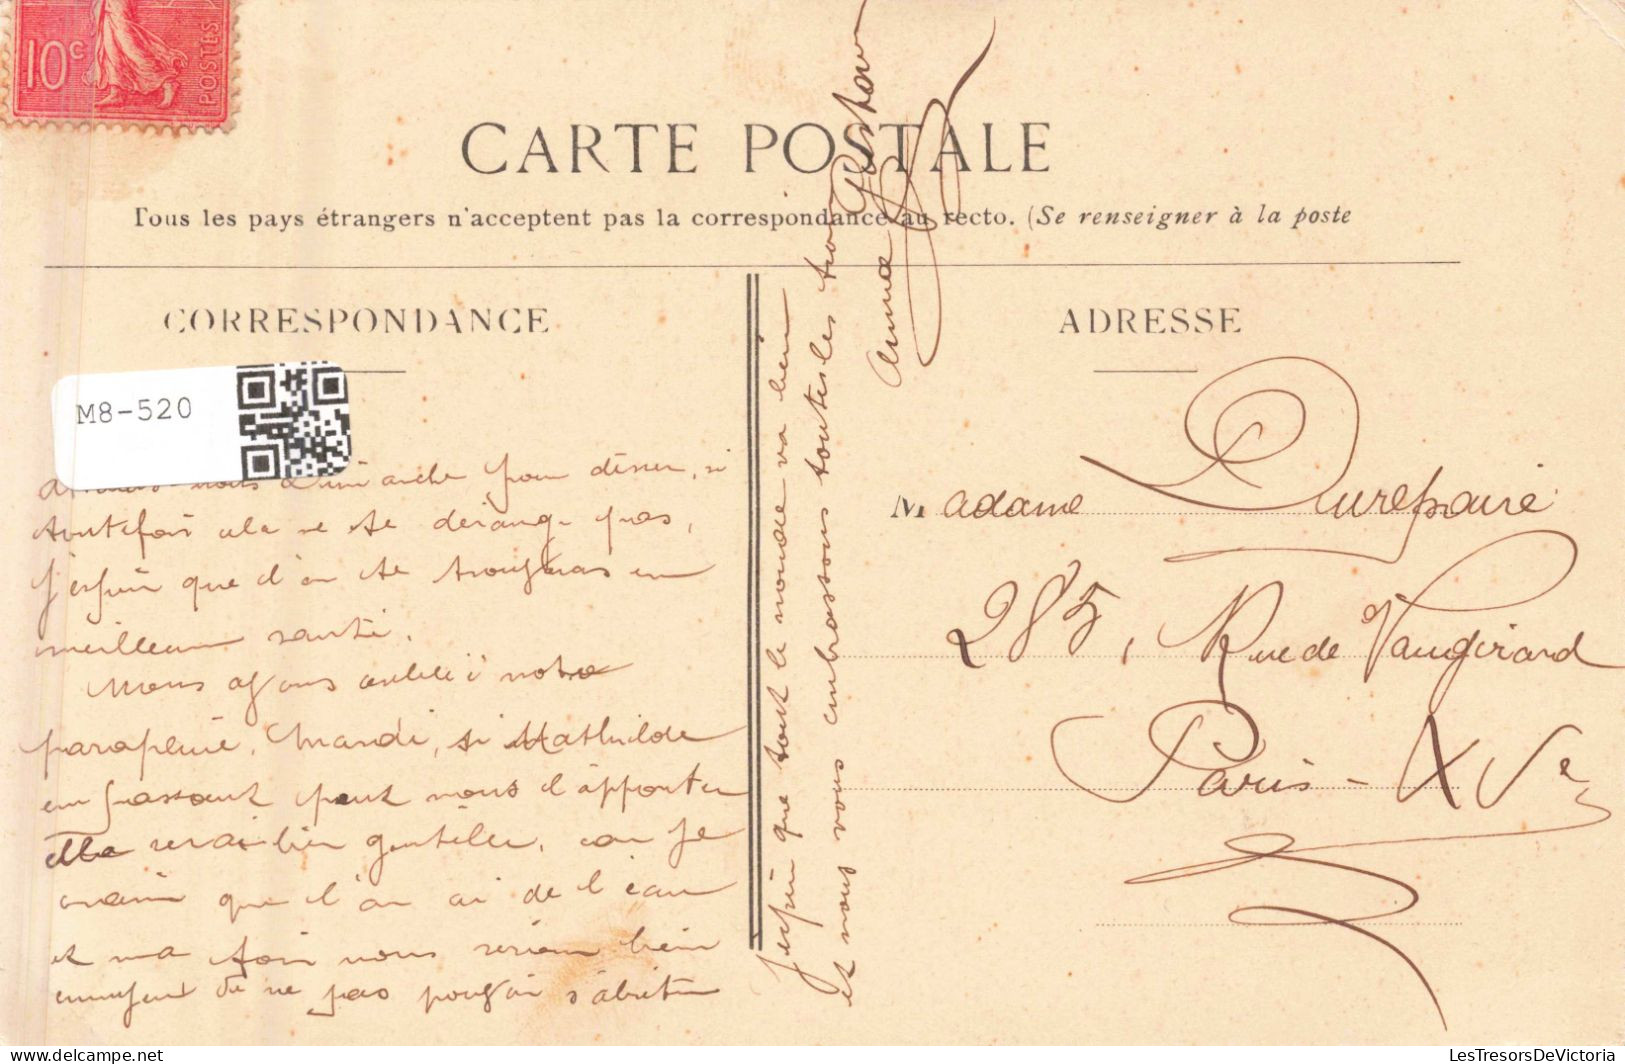 10c
POSTES
CARTE POSTALE
Tous les pays étrangers n'acceptent pas la correspondance au recto. (Se renseigner à la poste
CORRESPONDANCE
ADRESSE
M8-520
nous Dimanche pour diner, si
toutefois cela ne te derange pas,
J'espère que l'on te trouvera en
meilleur santé.
Nous avons oublié notre
parapluie, Mardi, si Mathilde
en passant peut nous l'apporter
elle serai bien gentille, car je
crain que l'on ai de l'eau
et ma foi nous serion bien
ennuyeux de ne pas pouvoir s'abriter
J'espère que tout le monde va bien
et nous vous embrassons toutes les trois
Anna
Madame Durepaire
285, Rue de Vaugirard
Paris - XVe
LesTresorsDeVictoria
delcampe.net